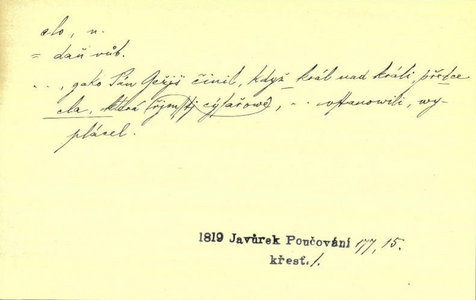 clo, n.
= daň vůb.
..., gako Pán Gežjš činil, když král nad králi předce
cla, která Řjmsstj cýsařowé, .. vstanowili, wy-
plácel.
1819 Javůrek Poučování 177, 15.
křest. 1.